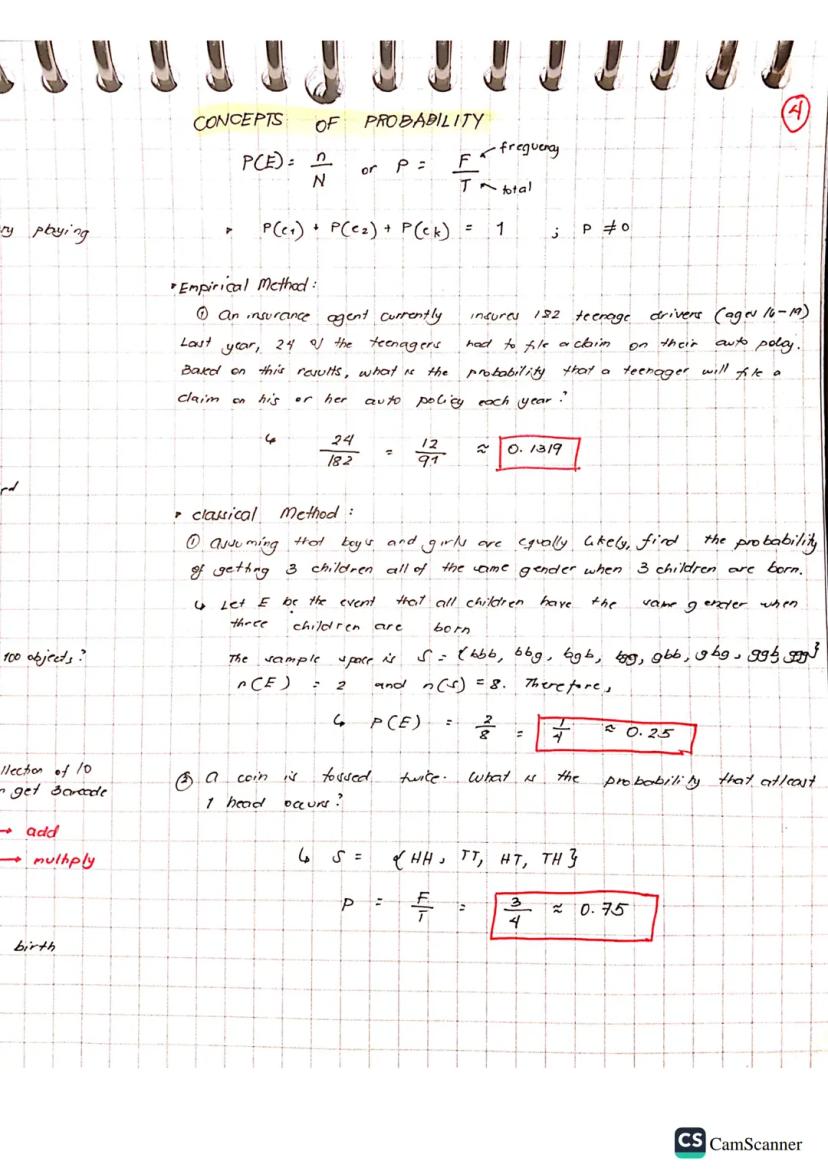 4
CONCEPTS OF PROBABILITY
P(E) = n/N or P = F/T
frequency
total
ry playing
P(e1) + P(e2) + P(ek) = 1 ; P ≠ 0
• Empirical Method:
① An insurance agent currently insures 182 teenage drivers (ages 16-19)
Last year, 24 of the teenagers had to file a claim on their auto policy.
Based on this results, what is the probability that a teenager will file a
claim on his or her auto policy each year?
↳ 24/182 = 12/91 ≈ 0.1319
rd
• classical Method:
① assuming that boys and girls are equally likely, find the probability
of getting 3 children all of the same gender when 3 children are born.
↳ Let E be the event that all children have the same gender when
three children are born
100 objects?
The sample space is S = {bbb, bbg, bgb, bgg, gbb, gbg, ggb, ggg}
n(E) = 2 and n(s) = 8. Therefore,
↳ P(E) = 2/8 = 1/4 ≈ 0.25
llection of 10
get Barcode
② a coin is tossed twice. What is the probability that atleast
1 head occurs?
→ add
→ multiply
↳ S = {HH, TT, HT, TH}
P = F/T = 3/4 ≈ 0.75
birth
CS CamScanner